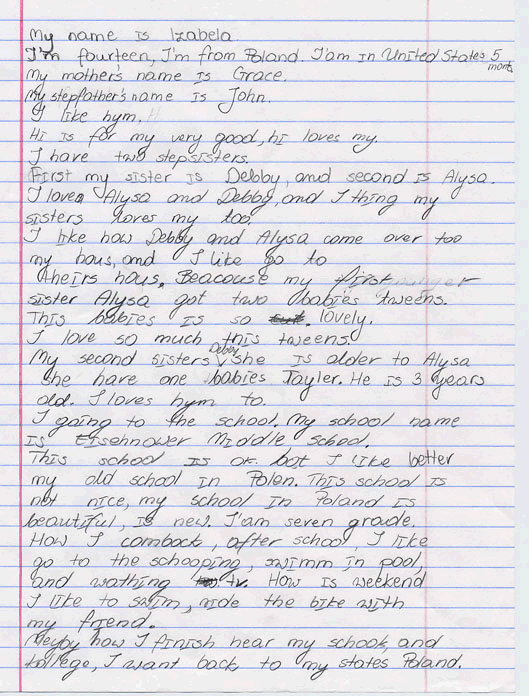 My name is Izabela
I'm fourteen, I'm from Poland. I'am in United States 5
mont.
My mother's name is Grace.
My stepfather's name is John.
I like hym.
Hi is for my very good, hi loves my.
I have two stepsisters.
First my sister is Debby, and second is Alysa.
I loves Alysa and Debby, and I thing my
sisters loves my too,
I like how Debby and Alysa come over too
my hous, and I like go to
theirs hous. Beacouse my first
sister Alysa got two babies tweens.
This babies is so lovely.
I love so much this tweens.
My second sisters Debby she is older to Alysa
she have one babies Tayler. He is 3 years
old. I loves hym to.
I going to the school. My school name
is Eisehnower Middle school.
This school is ok. bat I like better
my old school in Polen. This school is
not nice, my school in Poland is
beautiful, is new. I'am seven grade.
How I comback, after school, I like
go to the schooping, swimm in pool,
and wathing tv. How is weekend
I like to swim, ride the bike with
my friend.
Meyby how I finish hear my school, and
kollege, I want back to my states Poland.